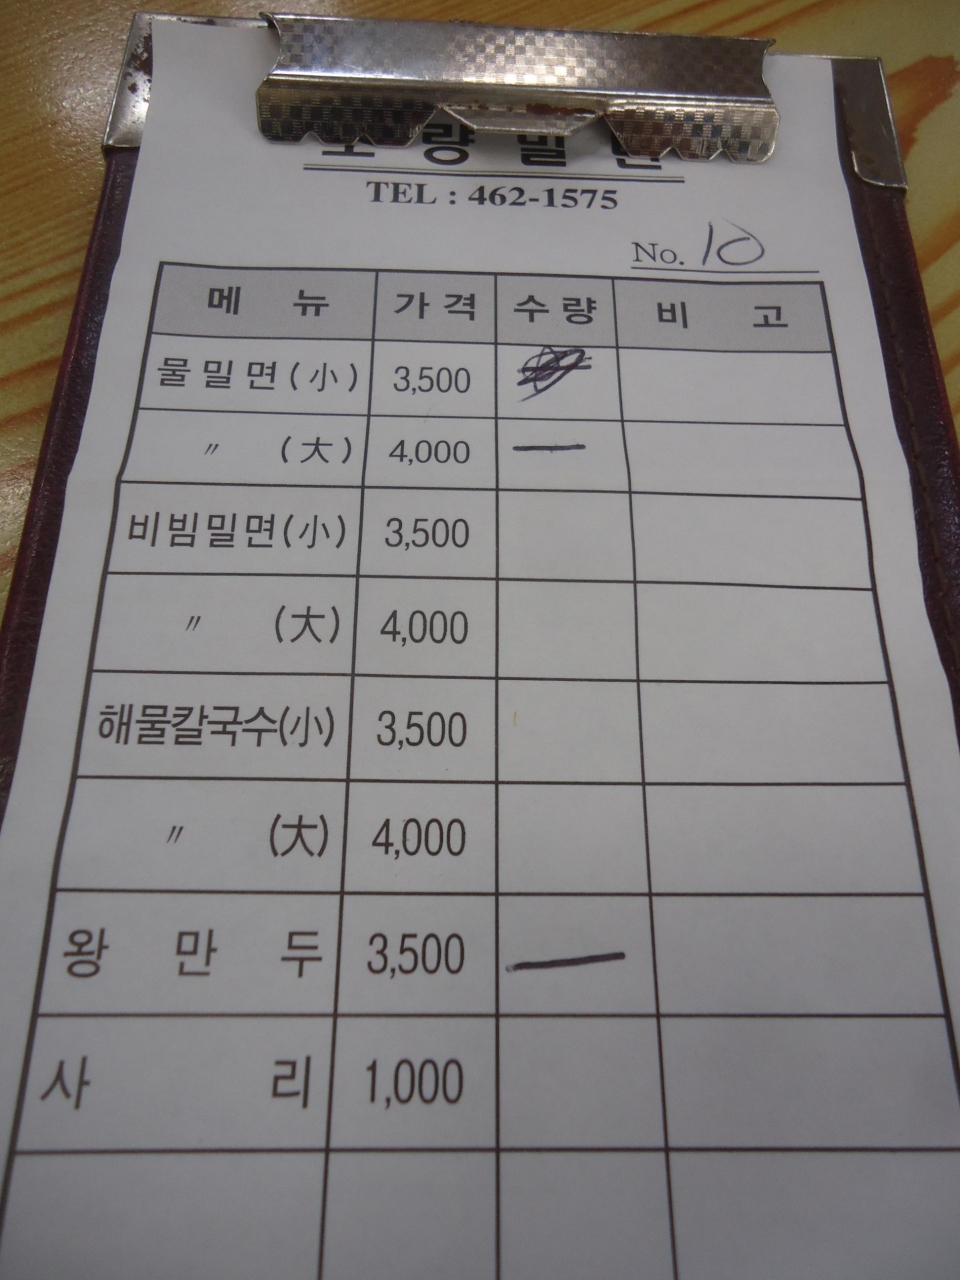 량밀
TEL : 462-1575
No. 10
메 뉴 가 격 수 량 비 고
물밀면(小) 3,500
〃 (大) 4,000 一
비빔밀면(小) 3,500
〃 (大) 4,000
해물칼국수(小) 3,500
〃 (大) 4,000
왕 만 두 3,500 一
사 리 1,000